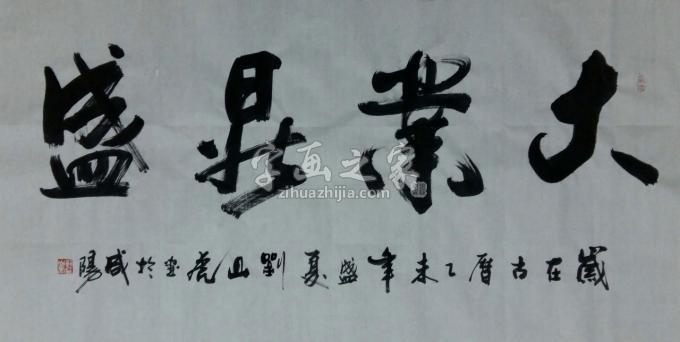 大業鼎盛
歲在古曆乙未年盛夏劉山虎書於咸陽
字画之家
zihuazhijia.com